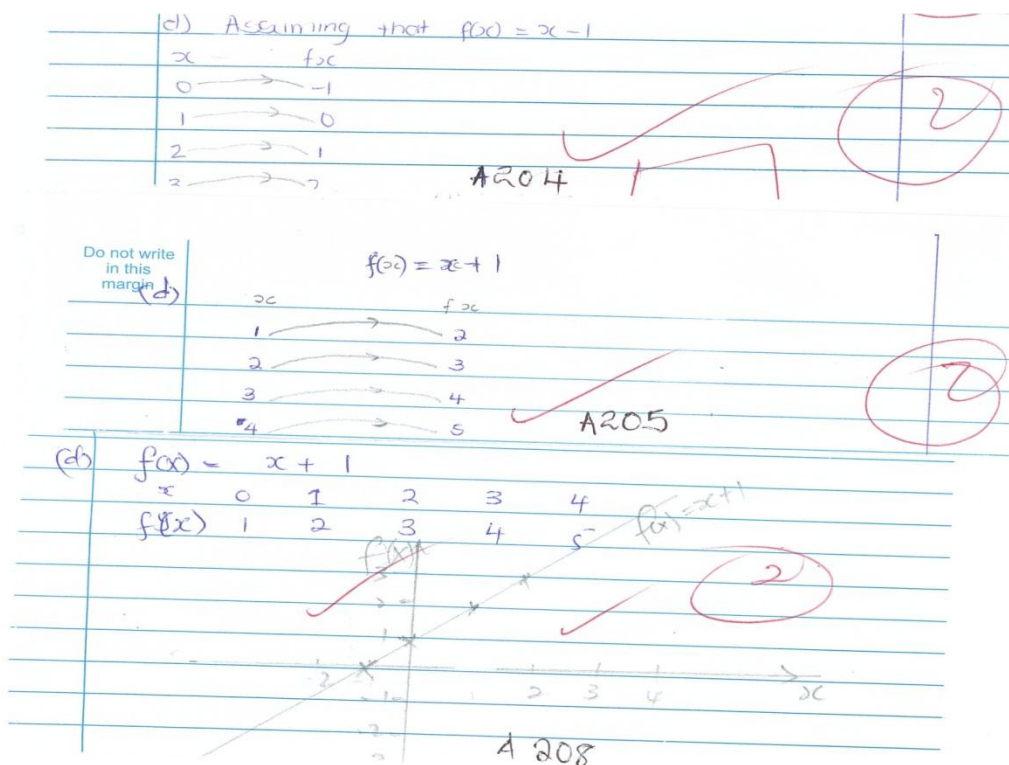 d) Assuming that f(x) = x - 1
x fx
0 → -1
1 → 0
2 → 1
3 → 2
A204
2
Do not write
in this
margin
(d)
f(x) = x + 1
x fx
1 → 2
2 → 3
3 → 4
4 → 5
A205
2
(d) f(x) = x + 1
x 0 1 2 3 4
f(x) 1 2 3 4 5
f(x) = x + 1
f(x)
3
2
1
-2 2 3 4 x
-1
-2
-3
2
A 208